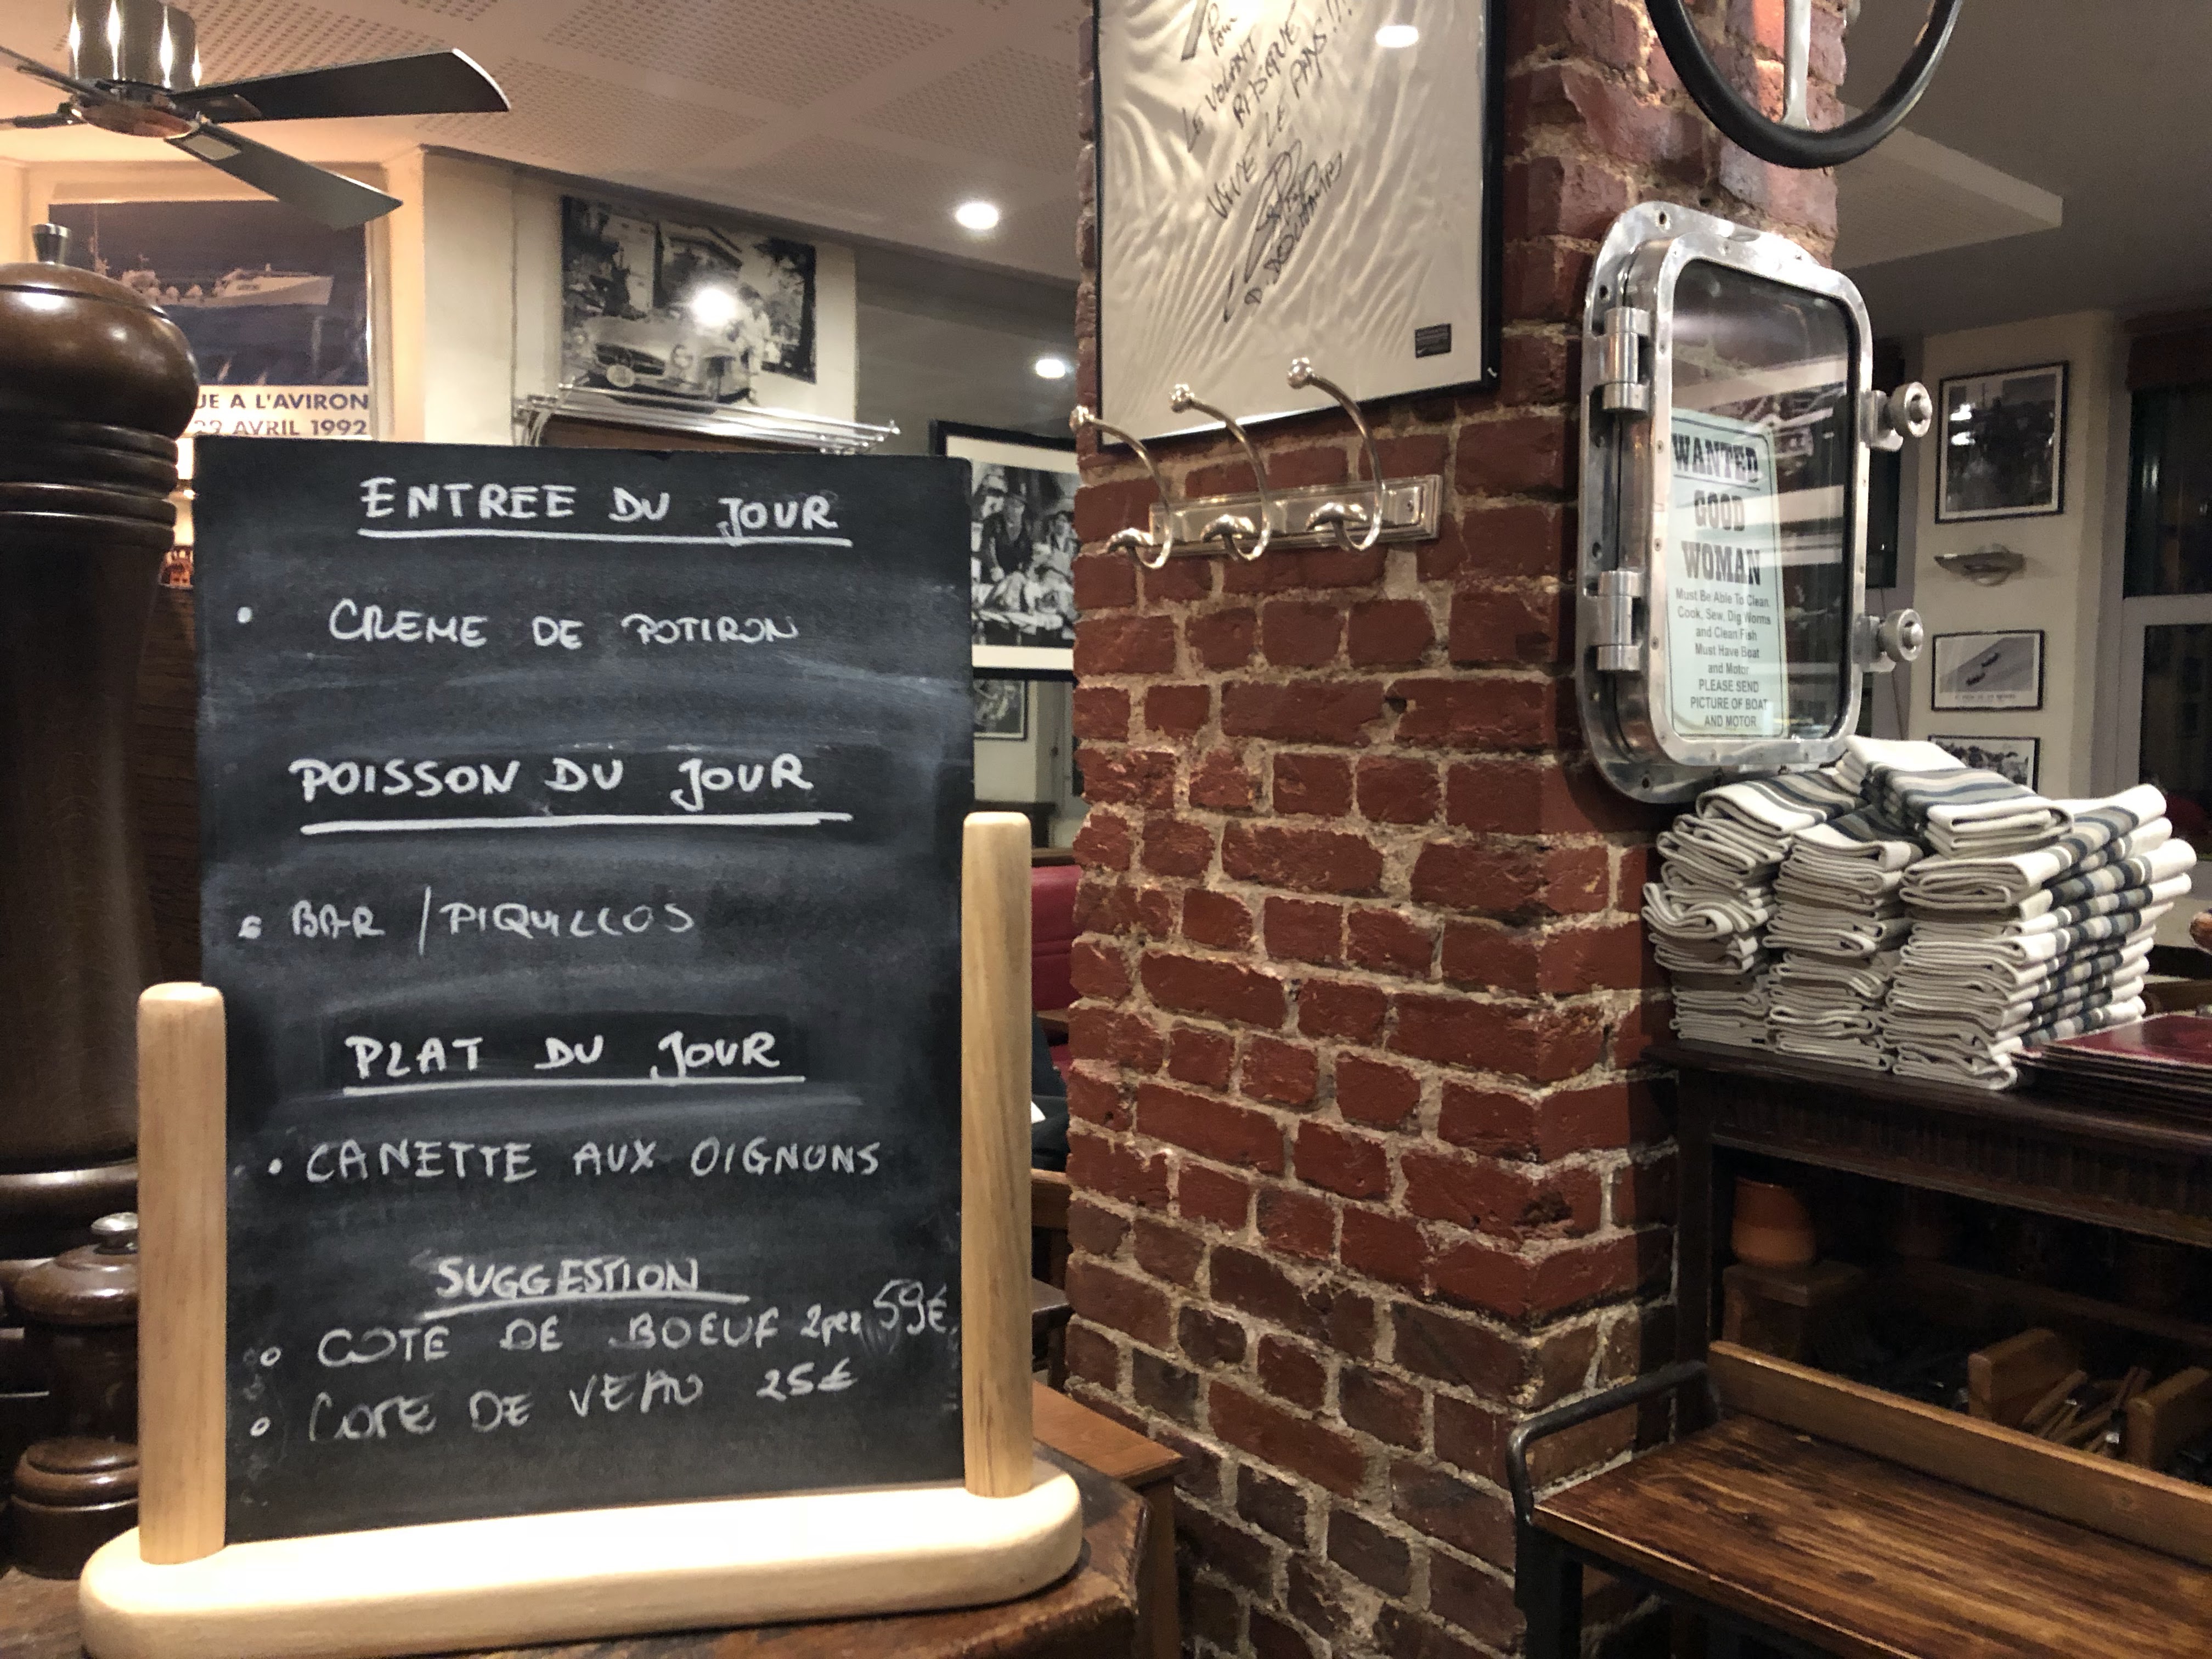 LE VOLANT
BASQUE
VIVE LE PAYS!!!
UE A L'AVIRON
AVRIL 1992
ENTREE DU JOUR
• CREME DE POTIRON
POISSON DU JOUR
• BAR / PIQUILLOS
PLAT DU JOUR
• CANETTE AUX OIGNONS
SUGGESTION
• COTE DE BOEUF 2per 59€
• COTE DE VEAU 25€
WANTED
GOOD
WOMAN
Must Be Able To Clean
Cook, Sew, Dig Worms
and Clean Fish
Must Have Boat
and Motor
PLEASE SEND
PICTURE OF BOAT
AND MOTOR